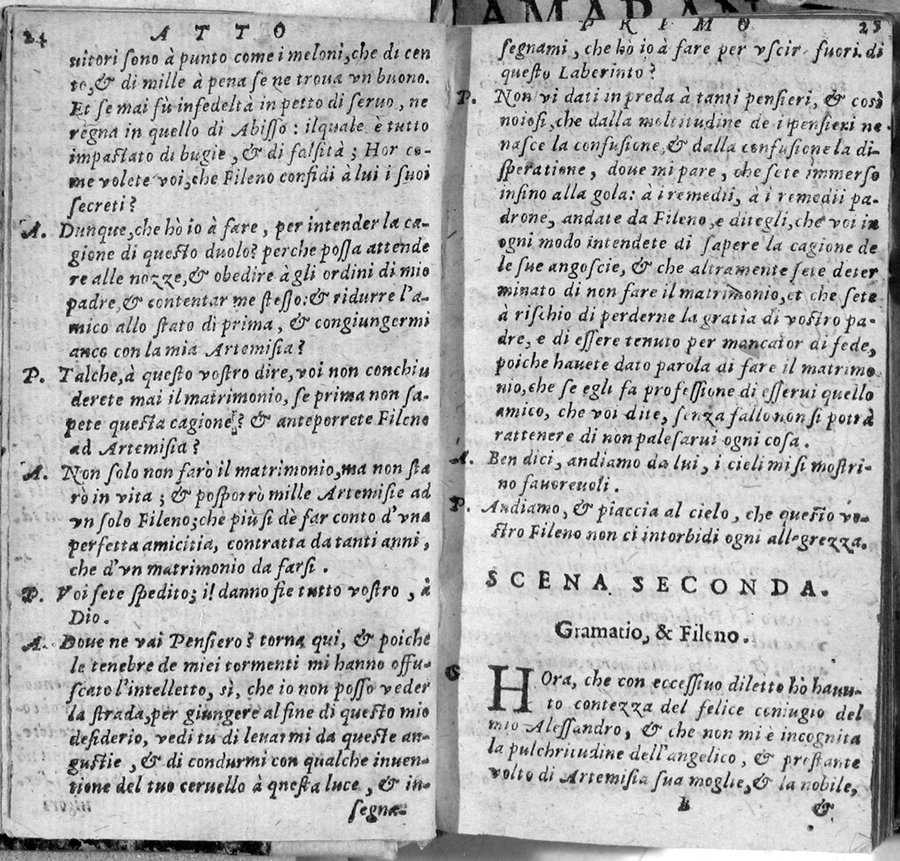 AMARAN
24 ATTO
uitori sono à punto come i meloni, che di cen
to, & di mille à pena se ne troua vn buono.
Et se mai fù infedeltà in petto di seruo, ne
règna in quello di Abisso: ilquale è tutto
impastato di bugie, & di falsità; Hor co-
me volete voi, che Fileno confidi à lui i suoi
secreti?
A. Dunque, che hò io à fare, per intender la ca-
gione di questo duolo? perche possa attende
re alle nozze, & obedire à gli ordini di mio
padre, & contentar me stesso: & ridurre l'a-
mico allo stato di prima, & congiungermi
anco con la mia Artemisia?
P. Talche, à questo vostro dire, voi non conchiu
derete mai il matrimonio, se prima non sa-
pete questa cagione? & anteporrete Fileno
ad Artemisia?
A. Non solo non farò il matrimonio, ma non sta
rò in vita; & posporrò mille Artemisie ad
vn solo Fileno; chè più si dè far conto d'vna
perfetta amicitia, contratta da tanti anni,
che d'vn matrimonio da farsi.
P. Voi sete spedito; il danno fie tutto vostro, à
Dio.
A. Doue ne vai Pensiero? torna qui, & poiche
le tenebre de miei tormenti mi hanno offu-
scato l'intelletto, sì, che io non posso veder
la strada, per giungere al fine di questo mio
desiderio, vedi tu di leuarmi da queste an-
gustie, & di condurmi con qualche inuen-
tione del tuo ceruello à qnesta luce, & in-
segna-
PRIMO 25
segnami, che hò io à fare per vscir fuori di
questo Laberinto?
P. Non vi dati in preda à tanti pensieri, & così
noiosi, che dalla moltitudine de i pensieri ne
nasce la confusione, & dalla confusione la di-
speratione, doue mi pare, che sete immerso
infino alla gola: à i remedii, à i remedii pa-
drone, andate da Fileno, e ditegli, che voi in
ogni modo intendete di sapere la cagione de
le sue angoscie, & che altramente sete deter
minato di non fare il matrimonio, et che sete
à rischio di perderne la gratia di vostro pa-
dre, e di essere tenuto per mancator di fede,
poiche hauete dato parola di fare il matrimo
nio, che se egli fa professione di esserui quello
amico, che voi dite, senza fallo non si potrà
rattenere di non palesarui ogni cosa.
A. Ben dici, andiamo da lui, i cieli mi si mostri-
no fauoreuoli.
P. Andiamo, & piaccia al cielo, che questo vo-
stro Fileno non ci intorbidi ogni allegrezza.
SCENA SECONDA.
Gramatio, & Fileno.
G HOra, che con eccessiuo diletto hò hauu-
to contezza del felice coniugio del
mio Alessandro, & che non mi è incognita
la pulchritudine dell'angelico, & prestante
volto di Artemisia sua moglie, & la nobile,
B &